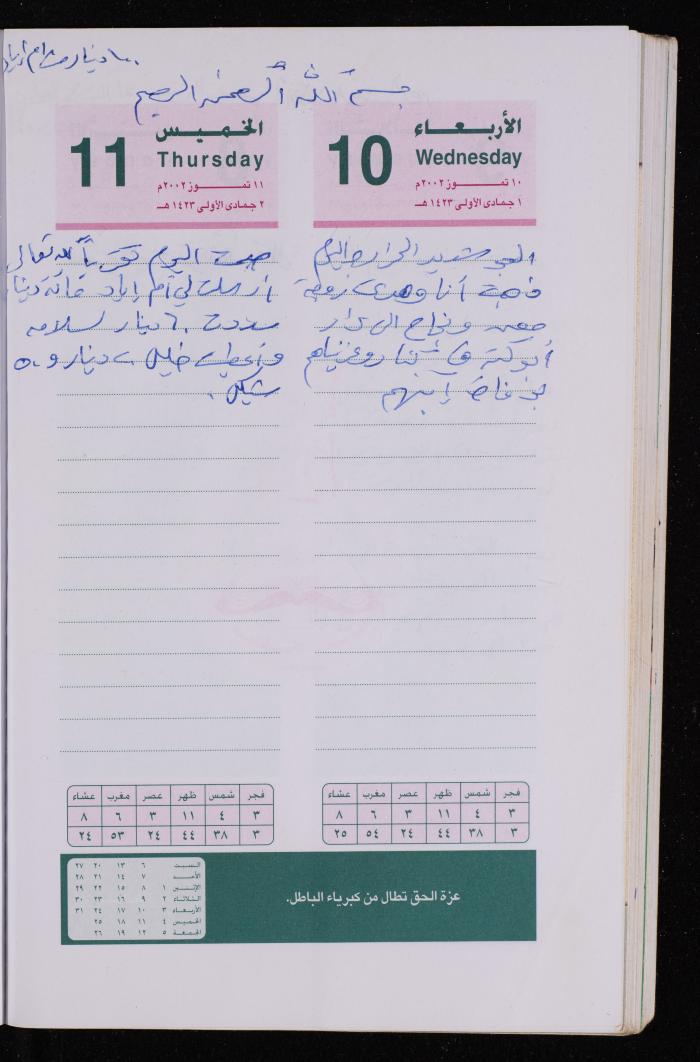 بسم الله الرحمن الرحيم
الأربعاء
10
Wednesday
١٠ تموز ٢٠٠٢م
١ جمادى الأولى ١٤٢٣ هـ
الجو شديد الحرارة اليوم
ذهبت أنا وهدى زوجة
ونجاح الى دار
أبو
إبنهم
الخميس
11
Thursday
١١ تموز ٢٠٠٢م
٢ جمادى الأولى ١٤٢٣ هـ
صمت اليوم تقرباً لله تعالى
أرسلت لي أم إياد مائة دينار
سددت ٦٠ دينار لسلامه
وأعطيت خليل ٢٠ دينار و ٥٠
شيكل.
فجر شمس ظهر عصر مغرب عشاء
٣ ٤ ١١ ٣ ٦ ٨
٣ ٣٨ ٤٤ ٢٤ ٥٤ ٢٥
فجر شمس ظهر عصر مغرب عشاء
٣ ٤ ١١ ٣ ٦ ٨
٣ ٣٨ ٤٤ ٢٤ ٥٣ ٢٤
عزة الحق تطال من كبرياء الباطل.
السبت ٦ ١٣ ٢٠ ٢٧
الأحد ٧ ١٤ ٢١ ٢٨
الإثنين ١ ٨ ١٥ ٢٢ ٢٩
الثلاثاء ٢ ٩ ١٦ ٢٣ ٣٠
الأربعاء ٣ ١٠ ١٧ ٢٤ ٣١
الخميس ٤ ١١ ١٨ ٢٥
الجمعة ٥ ١٢ ١٩ ٢٦